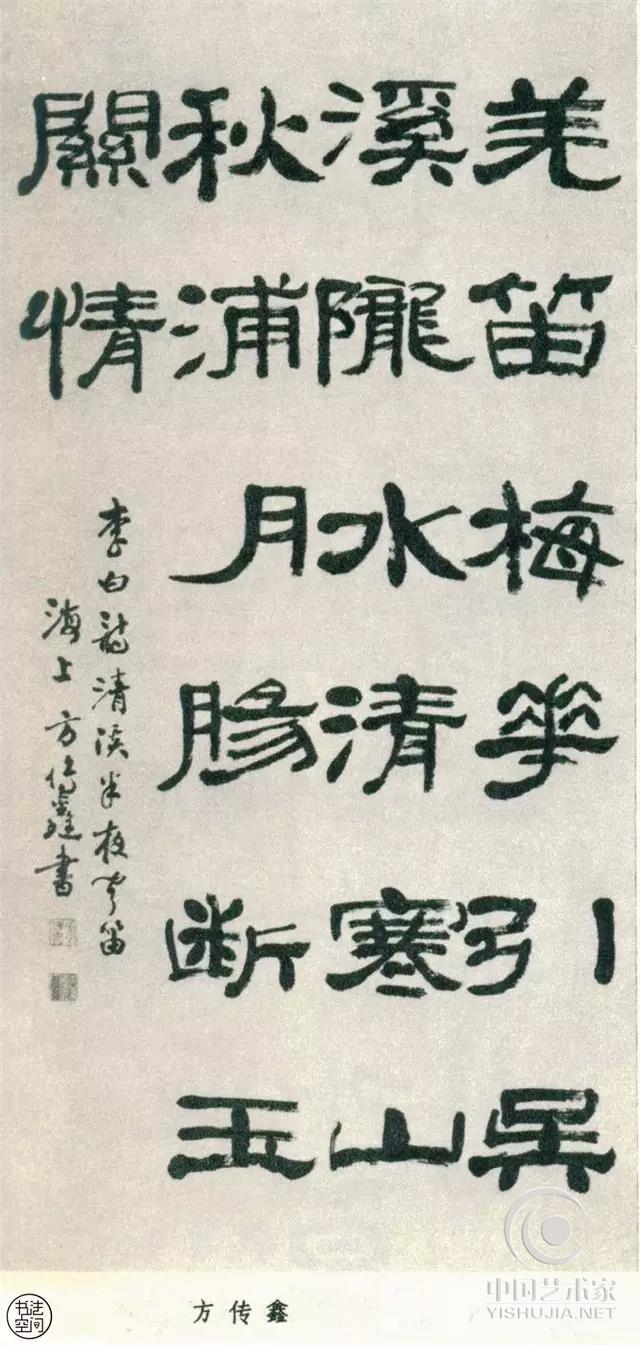 羌笛梅花引吳
溪隴水清寒山
秋浦月腸断玉
關情
李白龍清溪半夜闻笛
海上方傳鑫書
方传鑫
书法空间
中国艺术家
YISHUJIA.NET